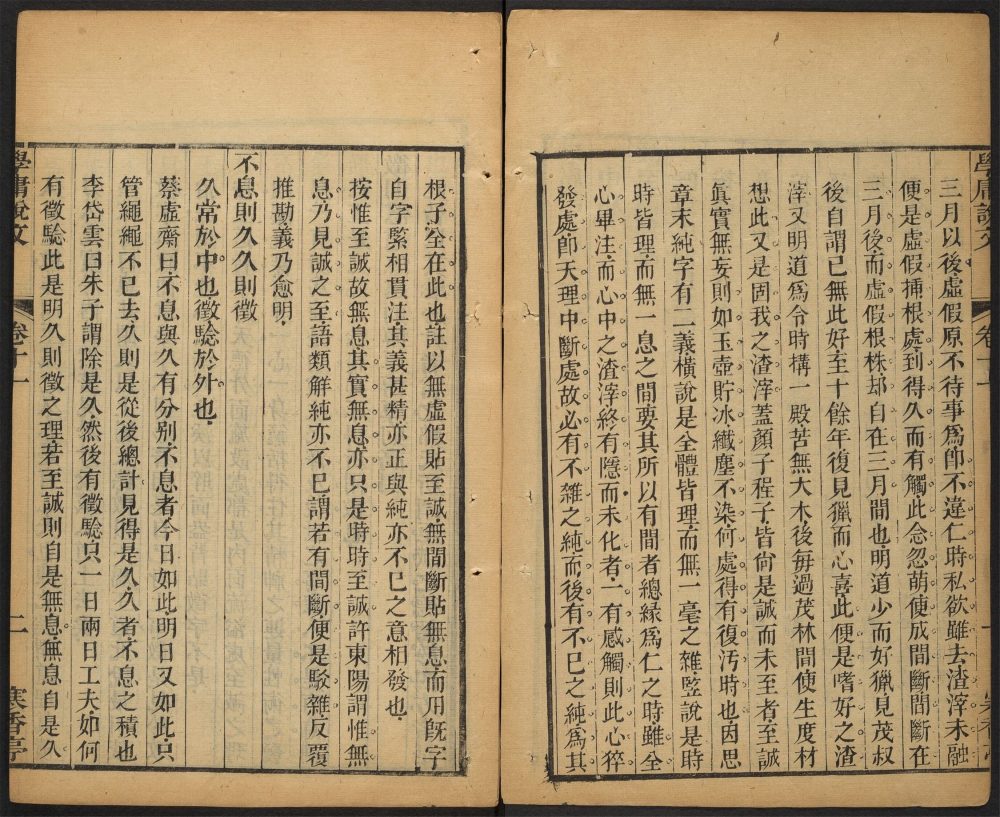 三月以後虛假原不待事爲卽不違仁時私欲雖去渣滓未融
便是虛假揷根處到得久而有觸此念忽萌便成間斷間斷在
三月後而虛假根株却自在三月間也明道少而好獵見茂叔
後自謂已無此好至十餘年復見獵而心喜此便是嗜好之渣
滓又明道爲令時構一殿苦無大木後每過茂林間便生度材
想此又是固我之渣滓蓋顏子程子皆尙是誠而未至者至誠
眞實無妄則如玉壺貯冰纖塵不染何處得有復汚時也因思
章末純字有二義橫說是全體皆理而無一毫之雜竪說是時
時皆理而無一息之間要其所以有間者總緣爲仁之時雖全
心畢注而心中之渣滓終有隱而未化者一有感觸則此心猝
發處卽天理中斷處故必有不雜之純而後有不已之純爲其
根子全在此也註以無虛假貼至誠無間斷貼無息而用旣字
自字緊相貫注其義甚精亦正與純亦不已之意相發也
按惟至誠故無息其實無息亦只是時時至誠許東陽謂惟無
息乃見誠之至語類解純亦不已謂若有間斷便是駁雜反覆
推勘義乃愈明
不息則久久則徵
久常於中也徵驗於外也
蔡虛齋曰不息與久有分别不息者今日如此明日又如此只
管繩繩不已去久則是從後總計見得是久久者不息之積也
李岱雲曰朱子謂除是久然後有徵驗只一日兩日工夫如何
有徵驗此是明久則徵之理若至誠則自是無息無息自是久
學庸說文
卷十一
二